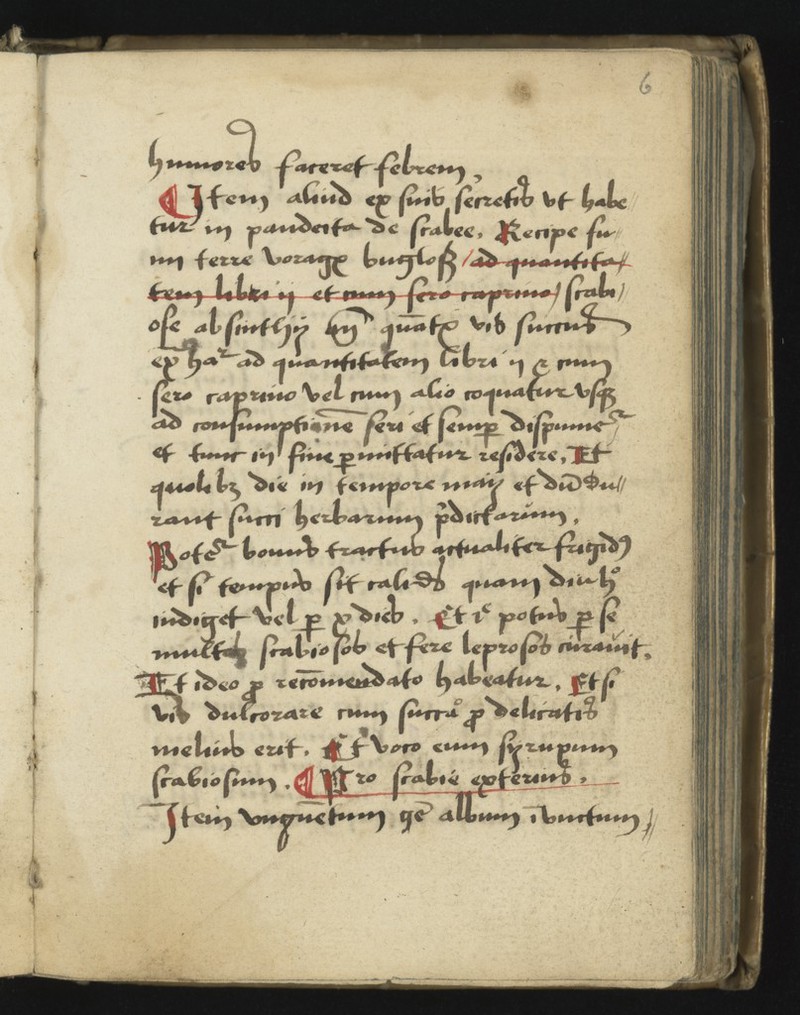 6
humores faceret febrem,
¶ Item aliud ex suis secretis vt habe
tur in pandecta de scabee. Recipe fu
mi terre voragꝫ bugloss ad quantita
tem libri ij et cum sero caprino scabi
ose absinthij qua͞tꝫ vis succus
ex ha ad quantitatem libri ij et cum
sero caprino vel cum alio coquatur vsqꝫ
ad consumptione͞ seri et semꝑ dispume
et tunc in fine ꝑmittatur residere, Et
qualibꝫ die in tempore maij et du͞ du
rant succi herbarum p͞dictarum.
Pote bonus tractus actualiter frigidꝯ
et si tempus sit calidus quam diu hͦ
indiget vel ꝑ xv dies. Et potus ꝑ se
multos scabiosos et fere leprosos curauit.
Et ideo ꝓ reco͞mendato habeatur. Et si
vis dulcorare cum succaͦ ꝓ delicatis
melius erit. Et voco eum syrupum
scabiosum. ¶ Pro scabie exterius.
Item vngue͞tum album i͞vnctum